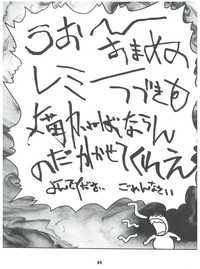 うお〜
おまぬの
レミー
つづきも
描かねばならん
のだ かかせてくれえ
よんでください ごめんなさい